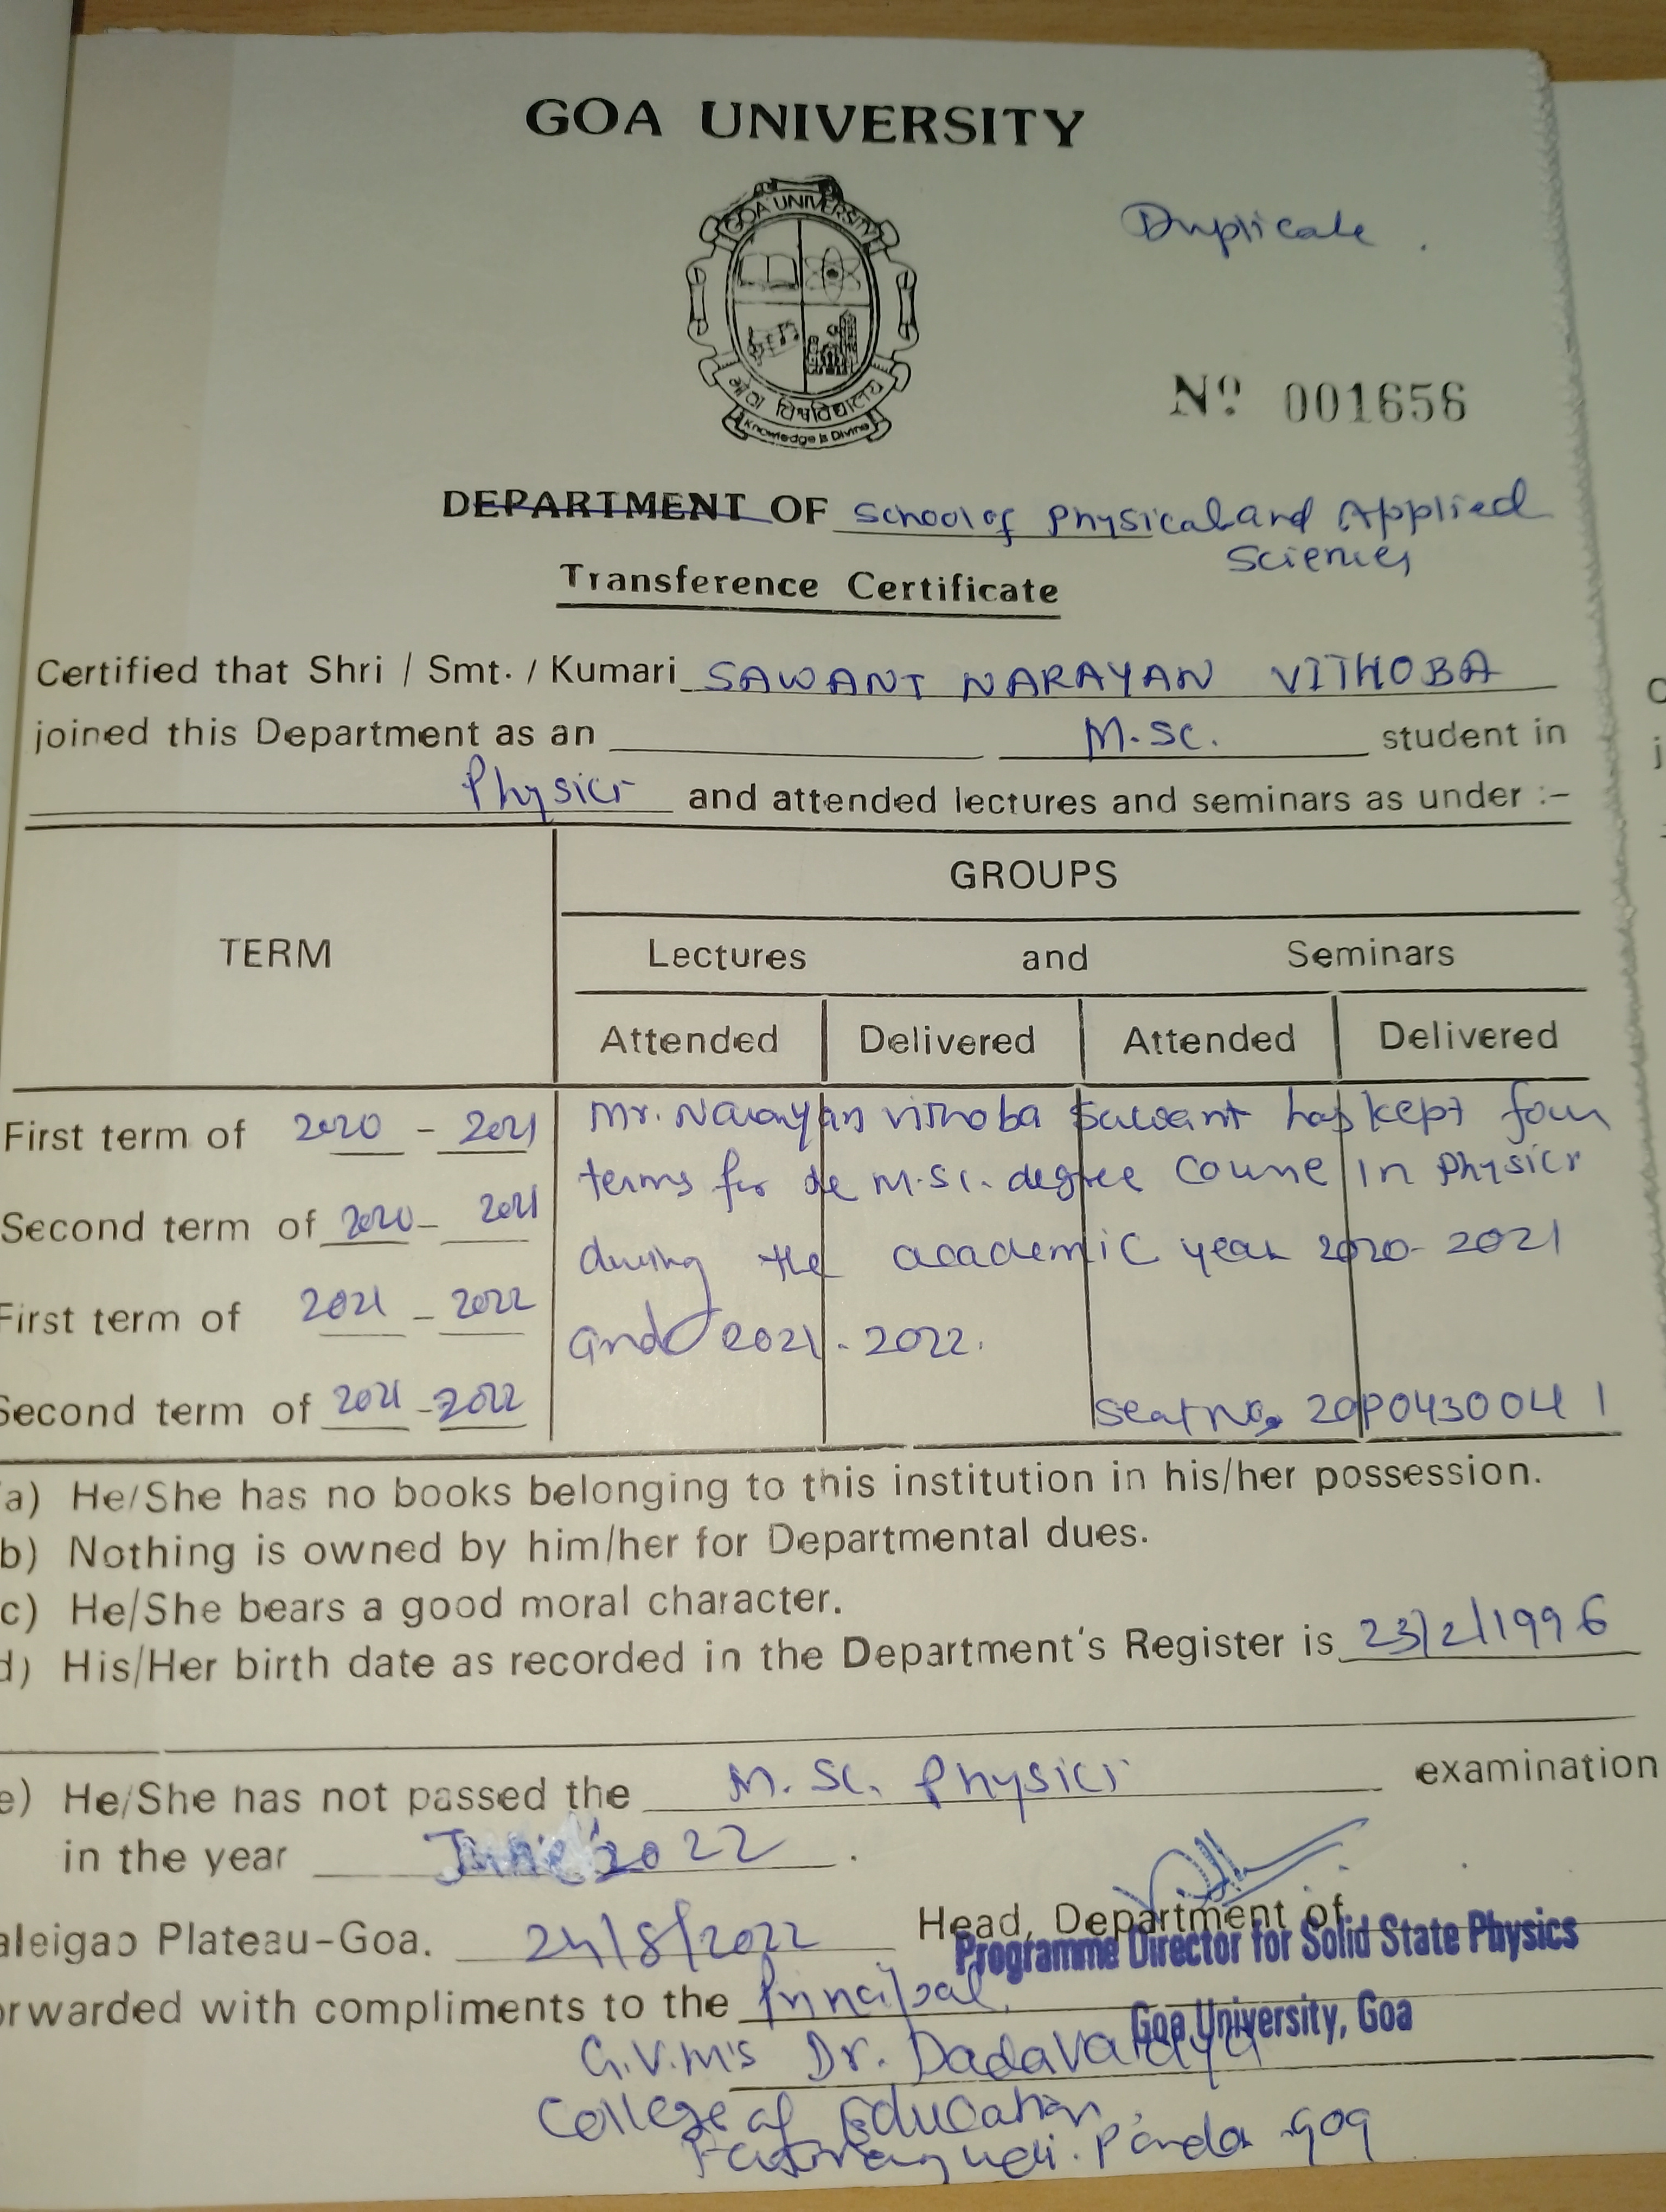 GOA UNIVERSITY
GOA UNIVERSITY
Duplicate .
गोवा विश्वविद्यालय
Knowledge is Divine
Nº 001656
DEPARTMENT OF School of Physical and Applied
Sciences
Transference Certificate
Certified that Shri / Smt. / Kumari SAWANT NARAYAN VITHOBA
joined this Department as an M.Sc. student in
Physics and attended lectures and seminars as under :-
GROUPS
TERM Lectures and Seminars
Attended Delivered Attended Delivered
First term of 2020 - 2021
Second term of 2020- 2021
First term of 2021 - 2022
Second term of 2021 - 2022
Mr. Narayan Vithoba Sawant has kept four
terms for the M.Sc. degree course in Physics
during the academic year 2020-2021
and 2021-2022.
Seat No. 20P0430041
a) He/She has no books belonging to this institution in his/her possession.
b) Nothing is owned by him/her for Departmental dues.
c) He/She bears a good moral character.
d) His/Her birth date as recorded in the Department's Register is 23/2/1996
e) He/She has not passed the M.Sc. Physics examination
in the year June 2022 .
aleigao Plateau-Goa. 24/8/2022 Head, Department of
Programme Director for Solid State Physics
orwarded with compliments to the Principal,
Goa University, Goa
G.V.M's Dr. Dada Vaidya
College of Education,
Ponda Goa